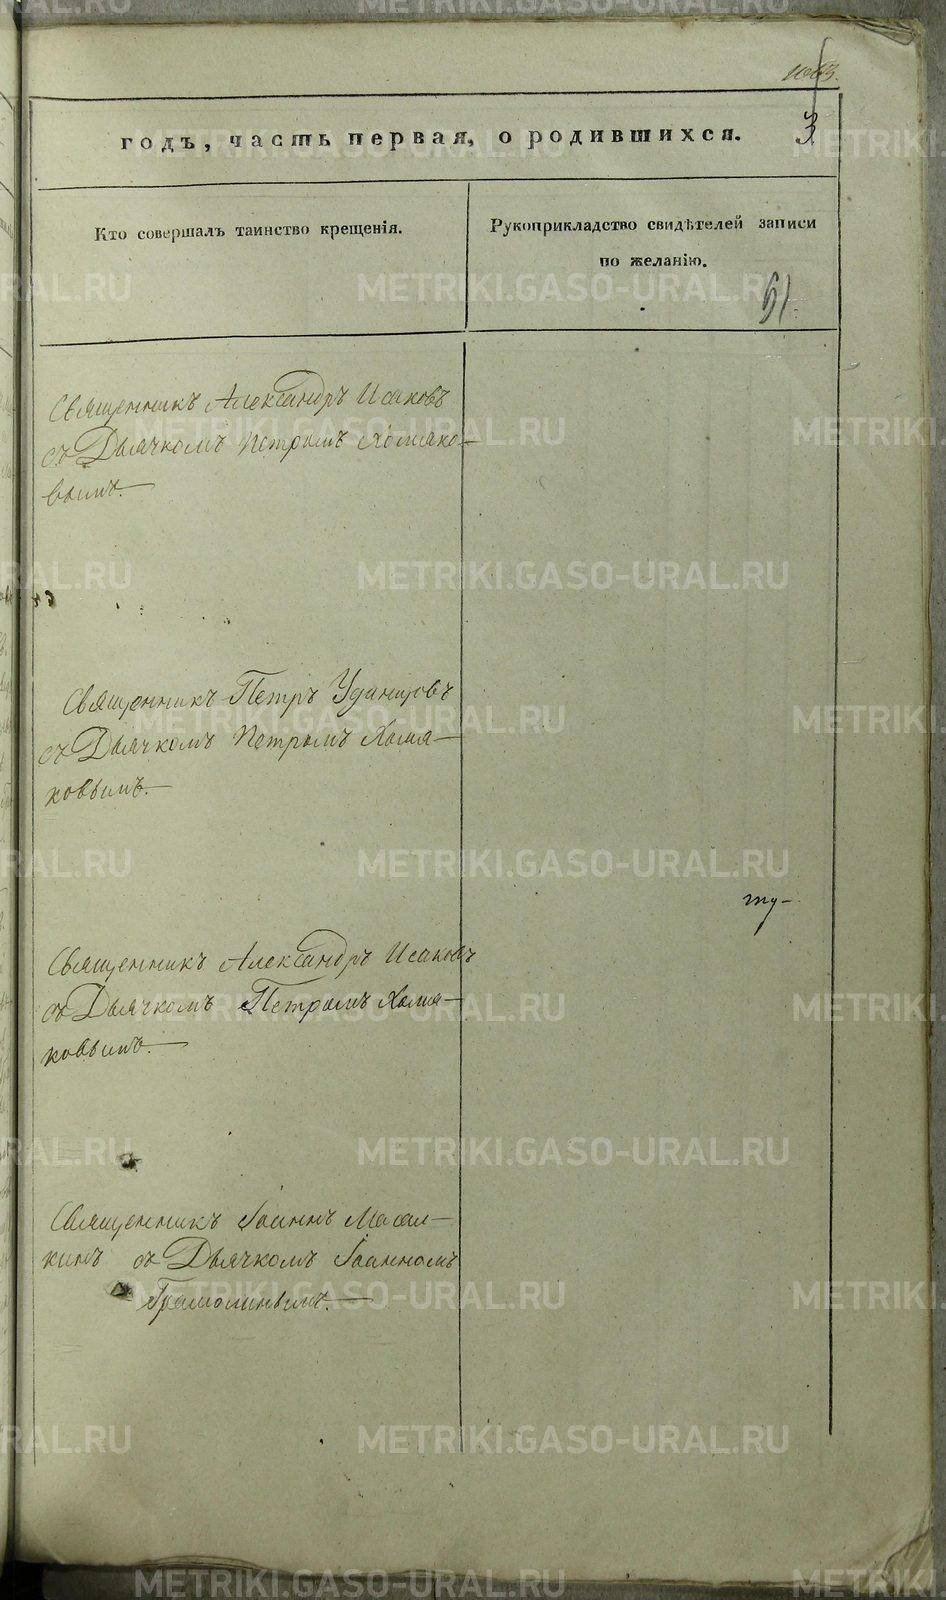 годъ, часть первая, о родившихся.
3
Кто совершалъ таинство крещенія.
Рукоприкладство свидѣтелей записи
по желанію.
51.
Священникъ Александръ Исаковъ
съ Дьячкомъ Петромъ Хомяко-
вымъ.
Священникъ Петръ Удинцовъ
съ Дьячкомъ Петромъ Хомя-
ковымъ.
Священникъ Александръ Исаковъ
съ Дьячкомъ Петромъ Хомя-
ковымъ.
Священникъ Іоаннъ Масал-
кинъ съ Дьячкомъ Іоанномъ
METRIKI.GASO-URAL.RU